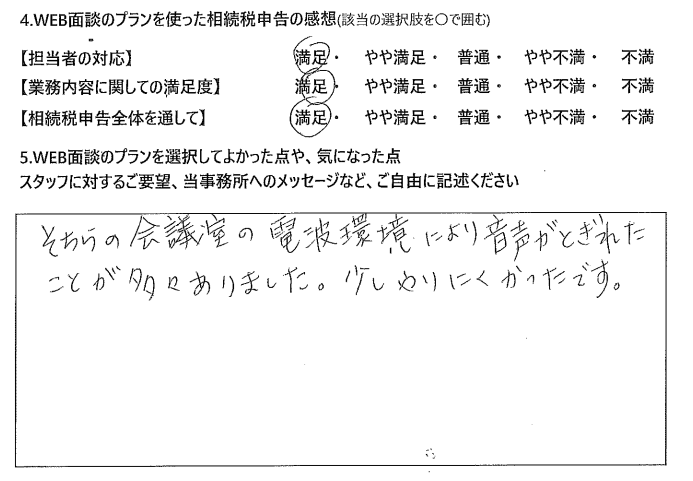 4.WEB面談のプランを使った相続税申告の感想(該当の選択肢を〇で囲む)
【担当者の対応】 満足・ やや満足・ 普通・ やや不満・ 不満
【業務内容に関しての満足度】 満足・ やや満足・ 普通・ やや不満・ 不満
【相続税申告全体を通して】 満足・ やや満足・ 普通・ やや不満・ 不満
5.WEB面談のプランを選択してよかった点や、気になった点
スタッフに対するご要望、当事務所へのメッセージなど、ご自由に記述ください
そちらの会議室の電波環境により音声がとぎれた
ことが多々ありました。少しやりにくかったです。